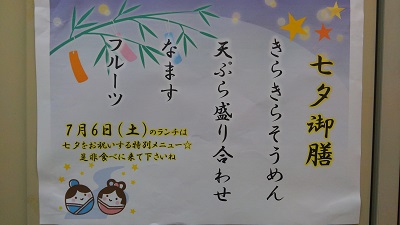 七夕御膳
きらきらそうめん
天ぷら盛り合わせ
なます
フルーツ
7月6日(土)のランチは
七夕をお祝いする特別メニュー☆
是非食べに来て下さいね